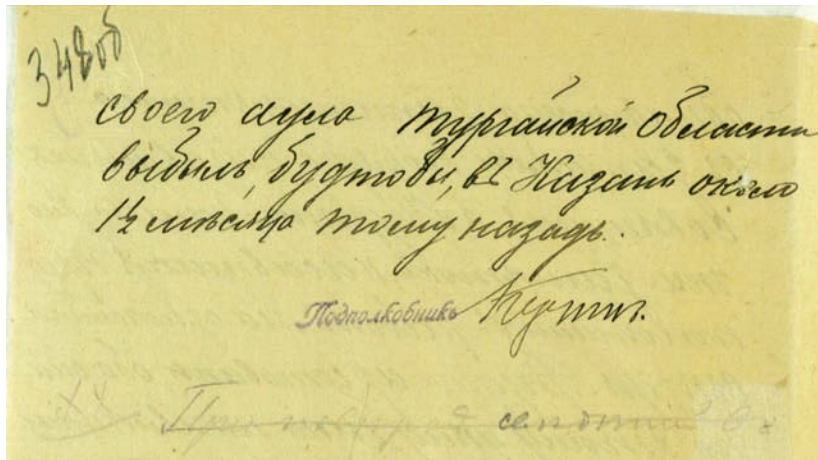 348об
своего аула Тургайской Области
выбылъ, будтобы, въ Казань около
1½ мѣсяца тому назадъ.
Подполковникъ
При